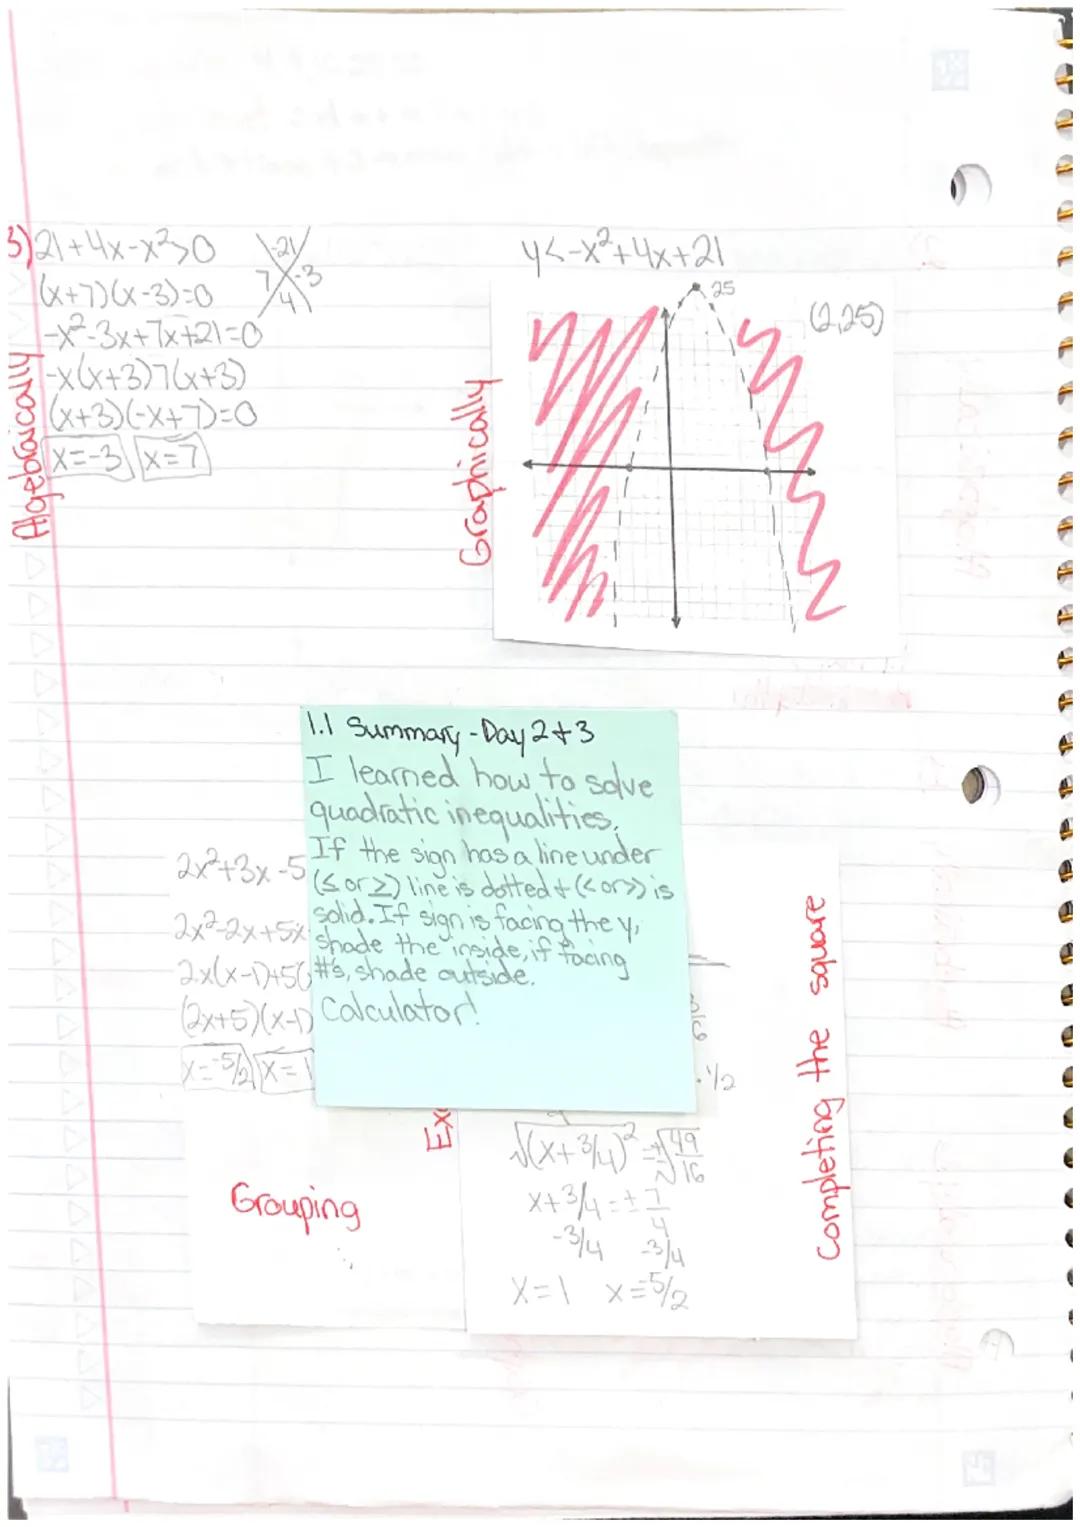 3) 21+4x-x²>0
-21
7 -3
4
(x+7)(x-3)=0
-x²-3x+7x+21=0
-x(x+3)7(x+3)
(x+3)(-x+7)=0
x=-3 x=7
Algebraically
y<-x²+4x+21
25
(2,25)
Graphically
1.1 Summary-Day 2+3
I learned how to solve
quadratic inequalities.
If the sign has a line under
(≤ or ≥) line is dotted + (< or >) is
solid. If sign is facing the y,
shade the inside, if facing
#'s, shade outside.
Calculator!
2x²+3x-5
2x²-2x+5x
2x(x-1)+5(
(2x+5)(x-1)
x=-5/2 x=1
Grouping
3
6
·1/2
√(x+3/4)²=±√49/16
x+3/4=±7/4
-3/4 -3/4
x=1 x=-5/2
Completing the square